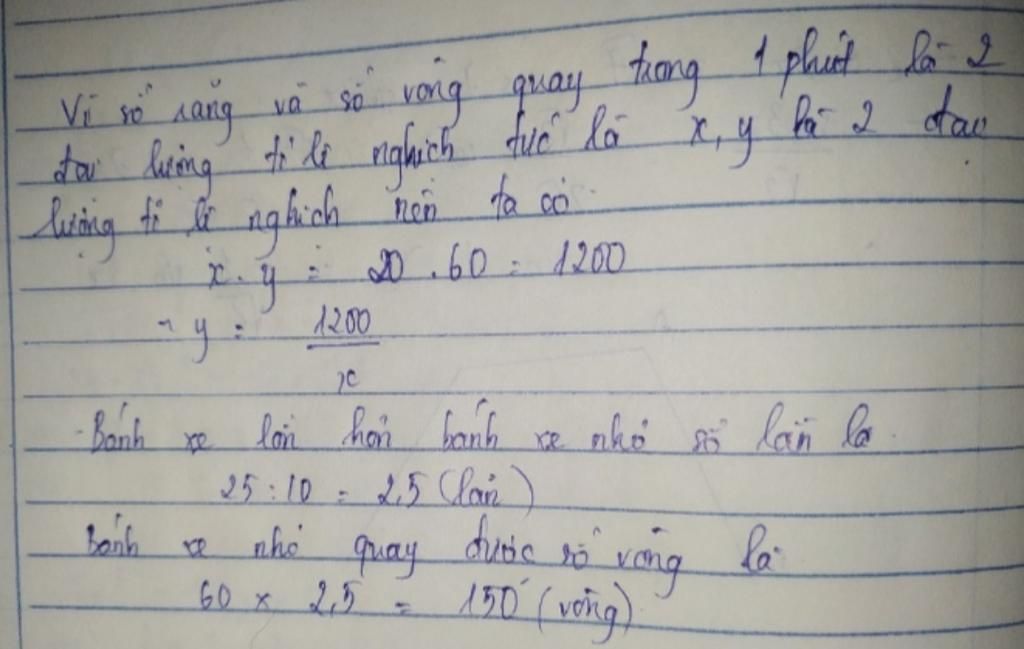 Vì số răng và số vòng quay trong 1 phút là 2
đại lượng tỉ lệ nghịch tức là x, y là 2 đại
lượng tỉ lệ nghịch nên ta có
x . y = 20 . 60 = 1200
y = 1200
x
Bánh xe lớn hơn bánh xe nhỏ số lần là
25 : 10 = 2,5 (lần)
Bánh xe nhỏ quay được số vòng là
60 x 2,5 = 150 (vòng)